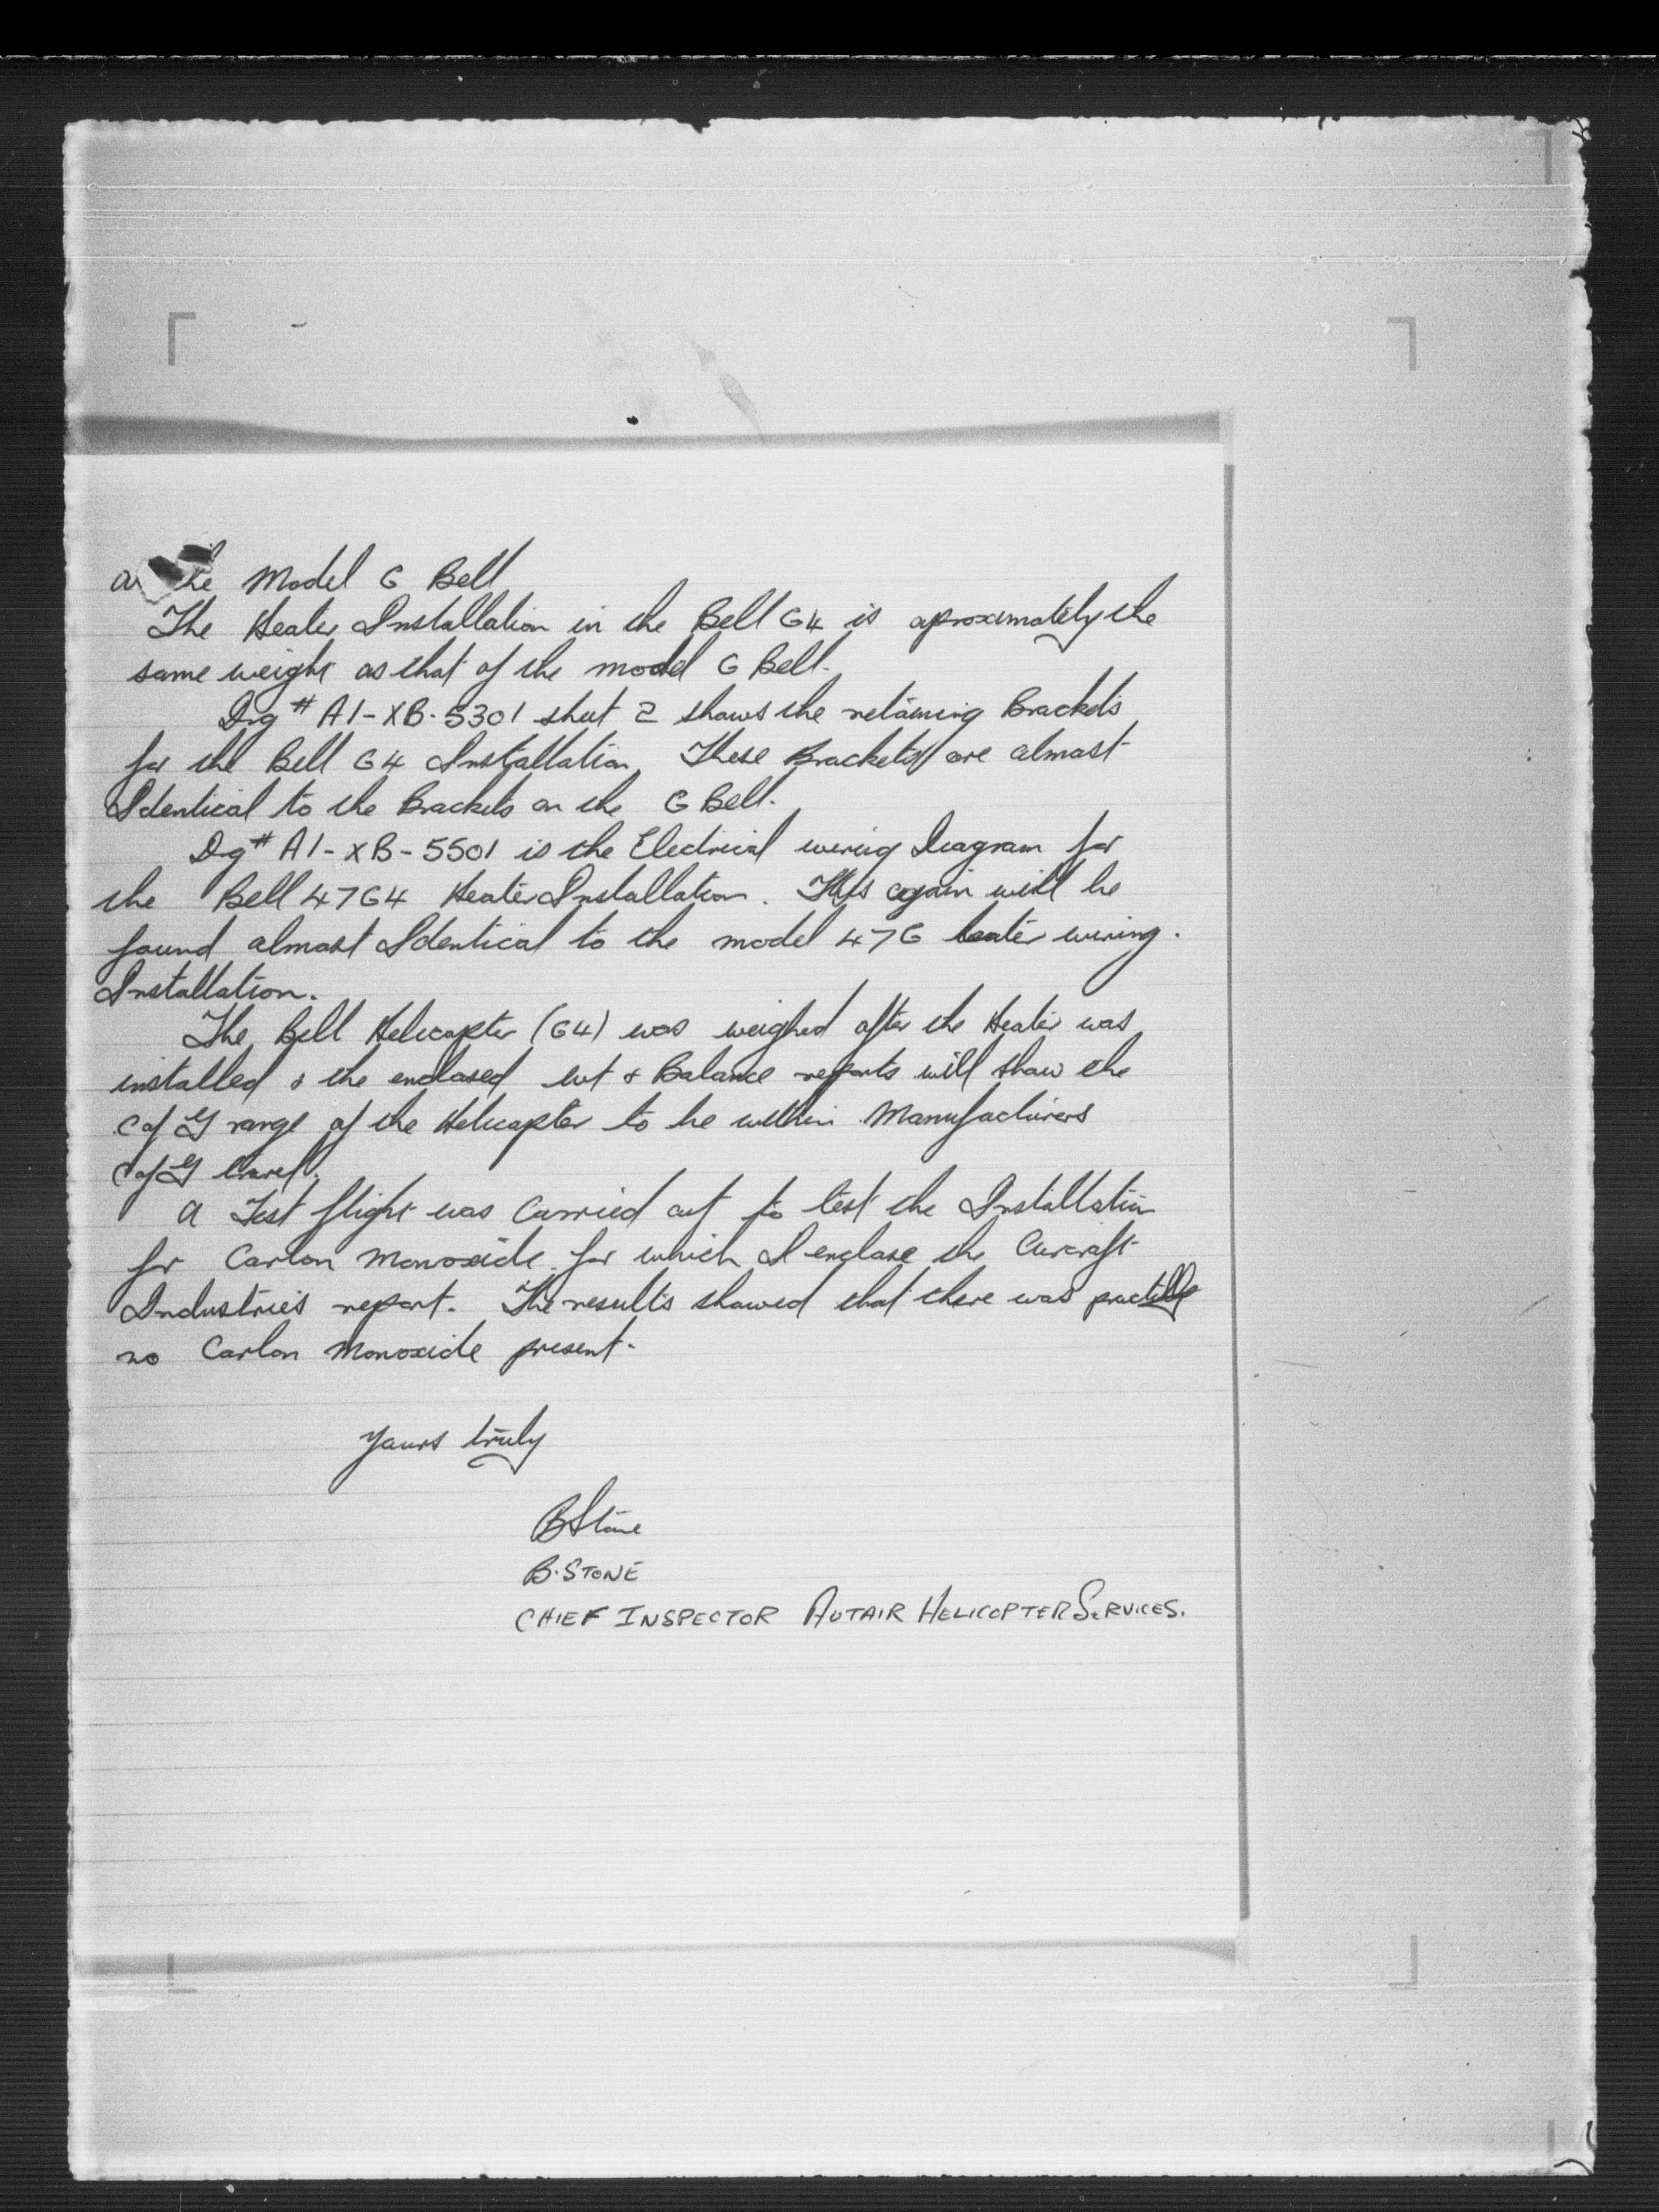 the Model G Bell
The Heater Installation in the Bell G4 is aproximately the
same weight as that of the model G Bell.
Drg # A1-XB-5301 sheet 2 shows the retaining Brackets
for the Bell G4 Installation. These Brackets are almost
Identical to the Brackets on the G Bell.
Drg # A1-XB-5501 is the Electrical wiring Diagram for
the Bell 47G4 Heater Installation. This again will be
found almost Identical to the model 47G heater wiring.
Installation.
The Bell Helicopter (G4) was weighed after the Heater was
installed & the enclosed wt & Balance reports will show the
C of G range of the Helicopter to be within Manufacturers
C of G travel.
A Test flight was Carried out to test the Installation
for Carbon Monoxide for which I enclose the Aircraft
Industries report. The results showed that there was
no Carbon Monoxide present.
Yours truly
B Stone
B. STONE
CHIEF INSPECTOR AUTAIR HELICOPTER SERVICES.